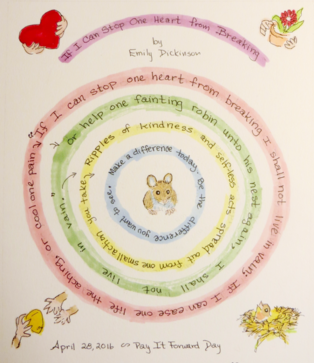 If I Can Stop One Heart from Breaking
by
Emily Dickinson
"If I can stop one heart from breaking I shall not live in vain; If I can ease one life the aching or cool one pain,
or help one fainting robin unto his nest again, I shall not live in vain."
Ripples of kindness and selfless acts spread out from one small action you take.
Make a difference today. Be the difference you want to see.
April 28, 2016 ∞ Pay It Forward Day